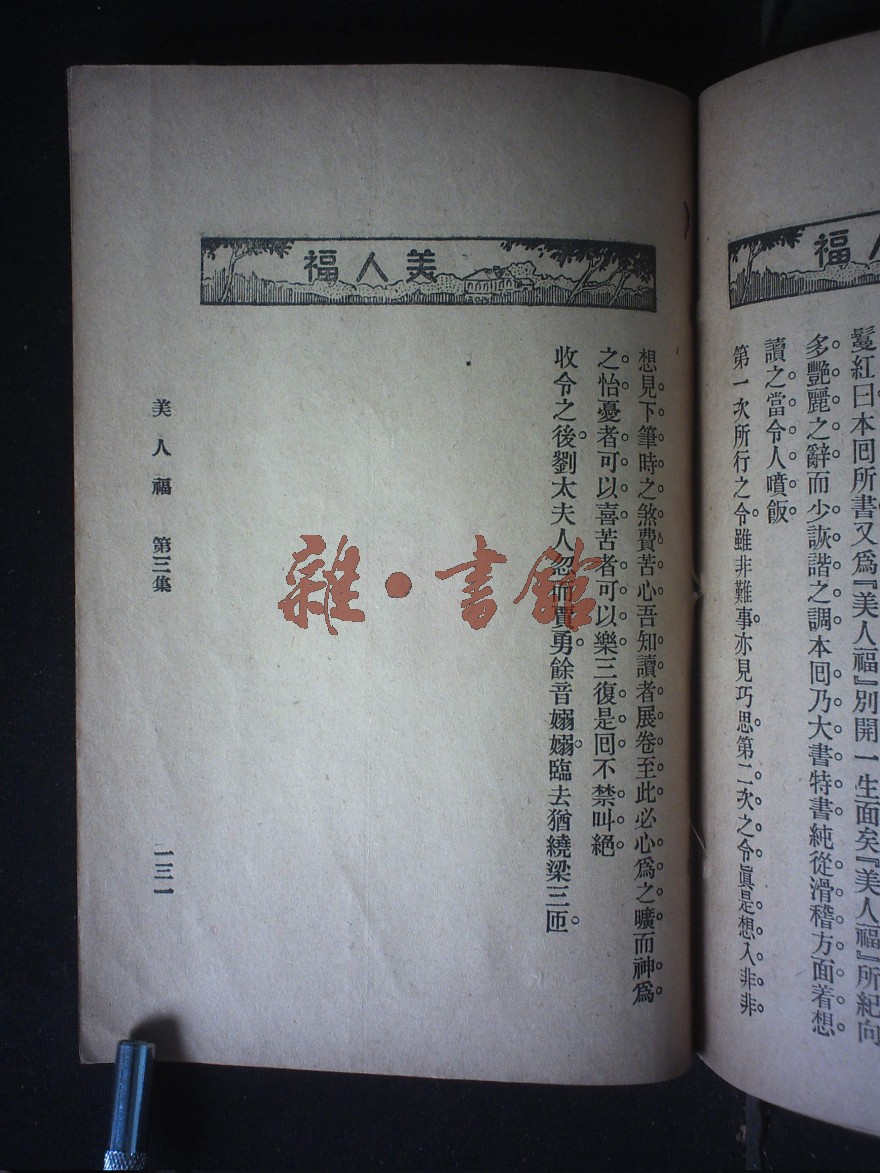 福人
鬘紅曰本回所書又爲『美人福』別開一生面矣『美人福』所紀向
多艷麗之辭而少詼諧之調本回乃大書特書純從滑稽方面着想
讀之當令人噴飯
第一次所行之令雖非難事亦見巧思第二次之令眞是想入非非
福人美
想見下筆時之煞費苦心吾知讀者展卷至此必心爲之曠而神爲
之怡憂者可以喜苦者可以樂三復是回不禁叫絕
收令之後劉太夫人忽而賈勇餘音嫋嫋臨去猶繞梁三匝
美人福 第三集
一三一
雜·書館